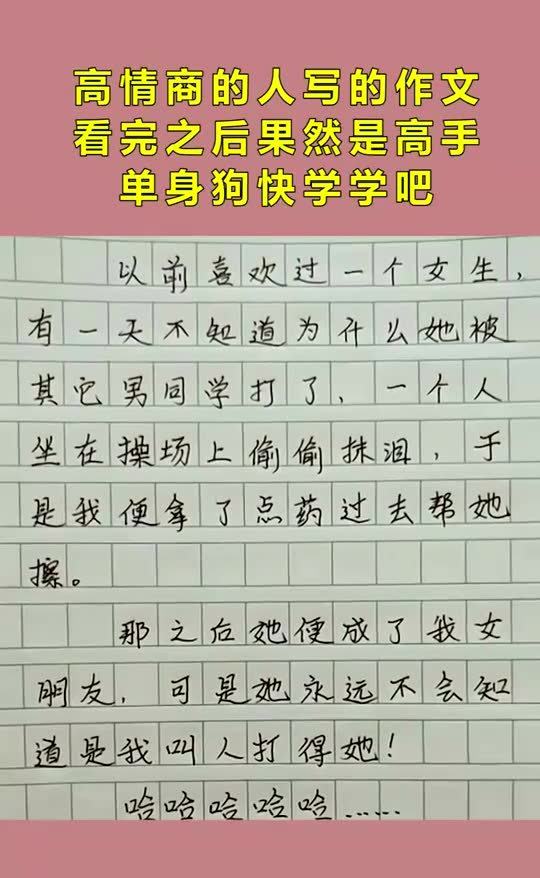 高情商的人写的作文
看完之后果然是高手
单身狗快学学吧
以前喜欢过一个女生，
有一天不知道为什么她被
其它男同学打了、一个人
坐在操场上偷偷抹泪，于
是我便拿了点药过去帮她
擦。
那之后她便成了我女
朋友，可是她永远不会知
道是我叫人打得她！
哈哈哈哈哈……